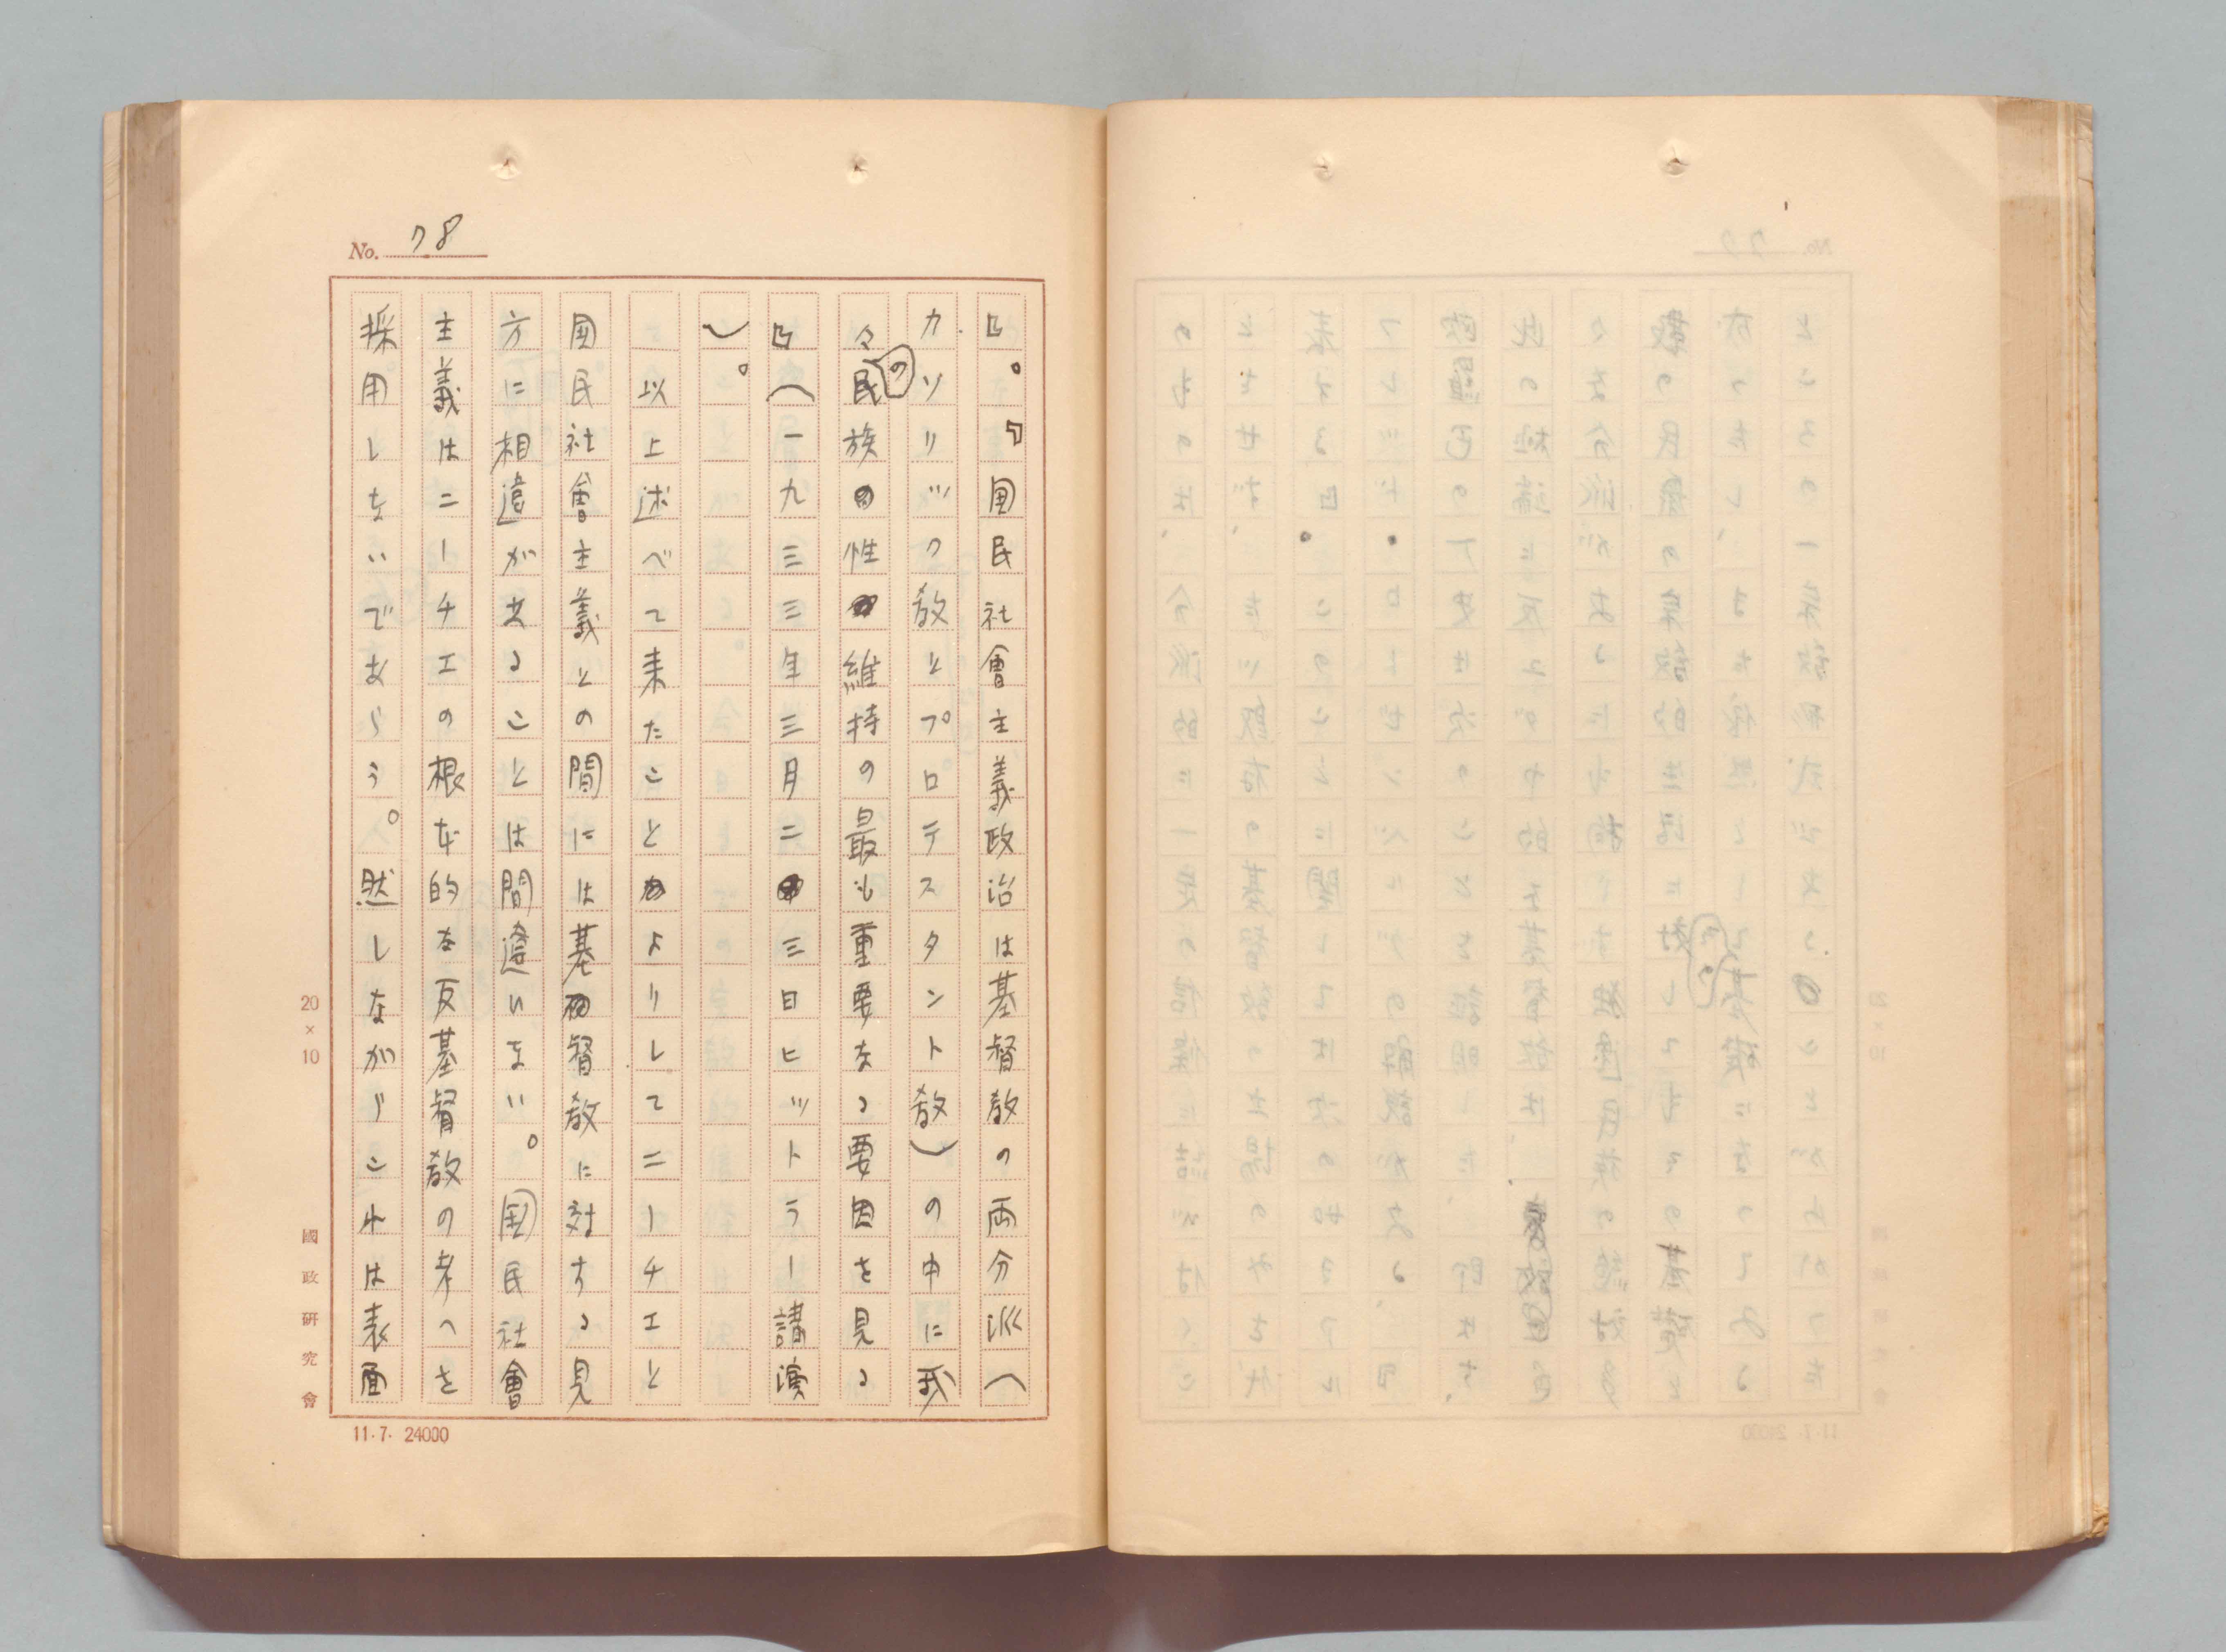 No. 78
』。『国民社會主義政治は基督教の両分派（
カソリック教とプロテスタント教）の中に我
々の民族の性維持の最も重要なる要因を見る
』（一九三三年三月二三日ヒットラー講演
）。
以上述べて来たことよりしてニーチエと
国民社會主義との間には基督教に対する見
方に相違があることは間違いない。国民社會
主義はニーチエの根本的な反基督教の考へを
採用しないであらう。然しながらこれは表面
20×10
國政研究會
11.7. 24000